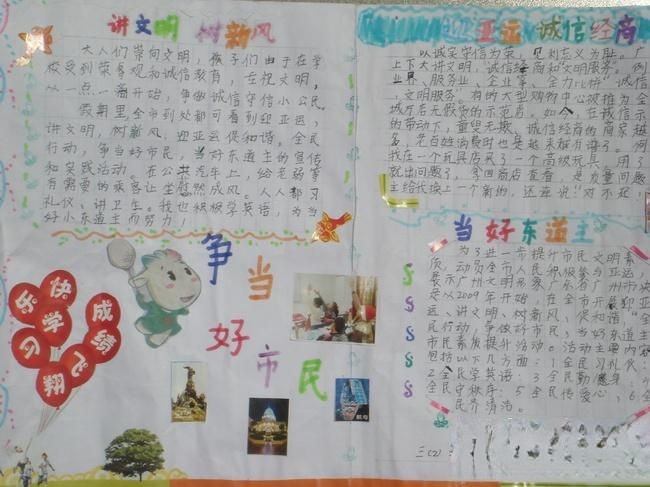 讲文明 树新风
大人们崇向文明，孩子们由于在学
校受到荣辱观和诚信教育，在視文明，
以一点一滴开始，争做诚信守信小公民。
假期里全市到处都可看到迎亚运，
讲文明，树新风，迎亚运促和谐。全民
行动，争当好市民，当好东道主的宣传
和实践活动。在公共汽车上，给老弱等
有需要的乘客让坐慰然成风。人人都习
礼仪、讲卫生。我也积极学英语，为当
好小东道主而努力！
迎亚运 诚信经商
以诚实守信为荣，见利忘义为耻。广
上下大讲文明，诚信经商和文明服务"。例
业界、服务业、企业等，全力比拼"诚信
，文明服务"
的带动下，童叟无欺、诚信经商的商家越
多，老百姓消费时也是越来越有谱了。例
我在一个玩具店买了一个高级玩具，用了
就出问题了，拿回商店查看，是质量问题
主给我换上一个新的，还连说"对不起，
当好东道主
为了进一步提升市民文明素
质，动员全市人民积极参与亚运，
展示广州文明形象，广东省广州市决
定从2009年开始，在全市开展迎亚
运、讲文明、树新风、促和谐"全
民行动，争做好市民，当好东道主
市民素质提升活动。活动主要内容
包括以下几方面：1全民习礼仪：
2全民学英语：3全民勤健身：4
全民守秩序：5全民传爱心，6全
民齐清洁。
争当好市民
快乐
学习
成绩
飞翔
三(2)